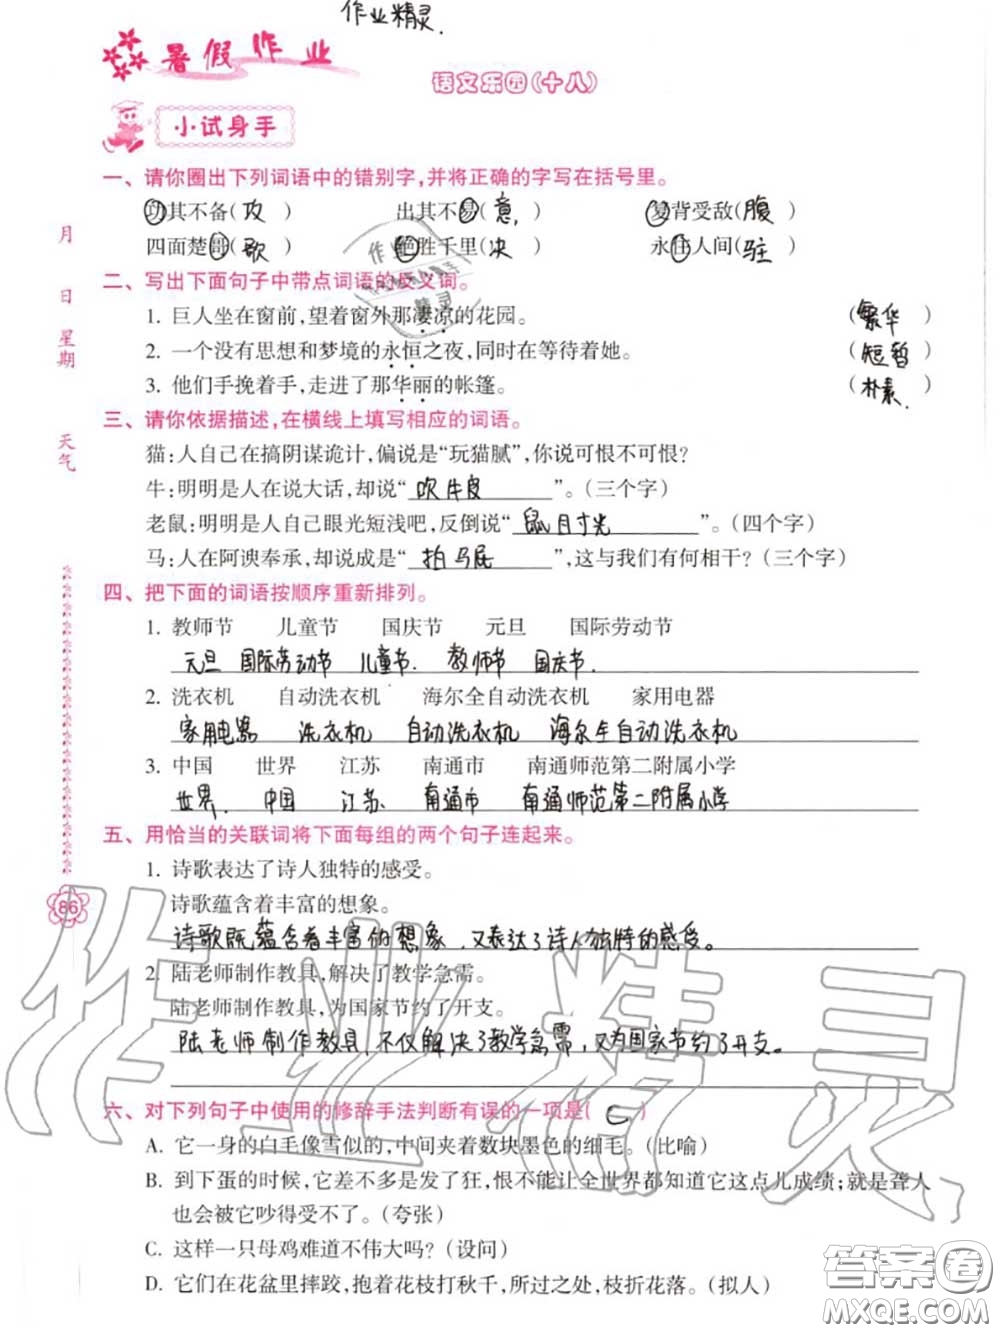 作业精灵.
暑假作业
语文乐园(十八)
小试身手
一、请你圈出下列词语中的错别字,并将正确的字写在括号里。
功其不备(攻 ) 出其不易(意, ) 复背受敌(腹 )
四面楚哥(歌 ) 绝胜千里(决 ) 永住人间(驻 )
二、写出下面句子中带点词语的反义词。
1. 巨人坐在窗前,望着窗外那凄凉的花园。 (繁华 )
2. 一个没有思想和梦境的永恒之夜,同时在等待着她。 (短暂 )
3. 他们手挽着手,走进了那华丽的帐篷。 (朴素. )
三、请你依据描述,在横线上填写相应的词语。
猫:人自己在搞阴谋诡计,偏说是“玩猫腻”,你说可恨不可恨?
牛:明明是人在说大话,却说“吹牛皮”。(三个字)
老鼠:明明是人自己眼光短浅吧,反倒说“鼠目寸光”。(四个字)
马:人在阿谀奉承,却说成是“拍马屁”,这与我们有何相干?(三个字)
四、把下面的词语按顺序重新排列。
1. 教师节 儿童节 国庆节 元旦 国际劳动节
元旦 国际劳动节 儿童节. 教师节 国庆节.
2. 洗衣机 自动洗衣机 海尔全自动洗衣机 家用电器
家用电器 洗衣机 自动洗衣机 海尔全自动洗衣机
3. 中国 世界 江苏 南通市 南通师范第二附属小学
世界. 中国 江苏 南通市 南通师范第二附属小学
五、用恰当的关联词将下面每组的两个句子连起来。
1. 诗歌表达了诗人独特的感受。
诗歌蕴含着丰富的想象。
诗歌既蕴含着丰富的想象,又表达了诗人独特的感受。
2. 陆老师制作教具,解决了教学急需。
陆老师制作教具,为国家节约了开支。
陆老师制作教具,不仅解决了教学急需,又为国家节约了开支。
六、对下列句子中使用的修辞手法判断有误的一项是( C )
A. 它一身的白毛像雪似的,中间夹着数块墨色的细毛。(比喻)
B. 到下蛋的时候,它差不多是发了狂,恨不能让全世界都知道它这点儿成绩;就是聋人
也会被它吵得受不了。(夸张)
C. 这样一只母鸡难道不伟大吗?(设问)
D. 它们在花盆里摔跤,抱着花枝打秋千,所过之处,枝折花落。(拟人)
月
日
星期
天气
86
作业精灵
答案圈
MXQE.COM